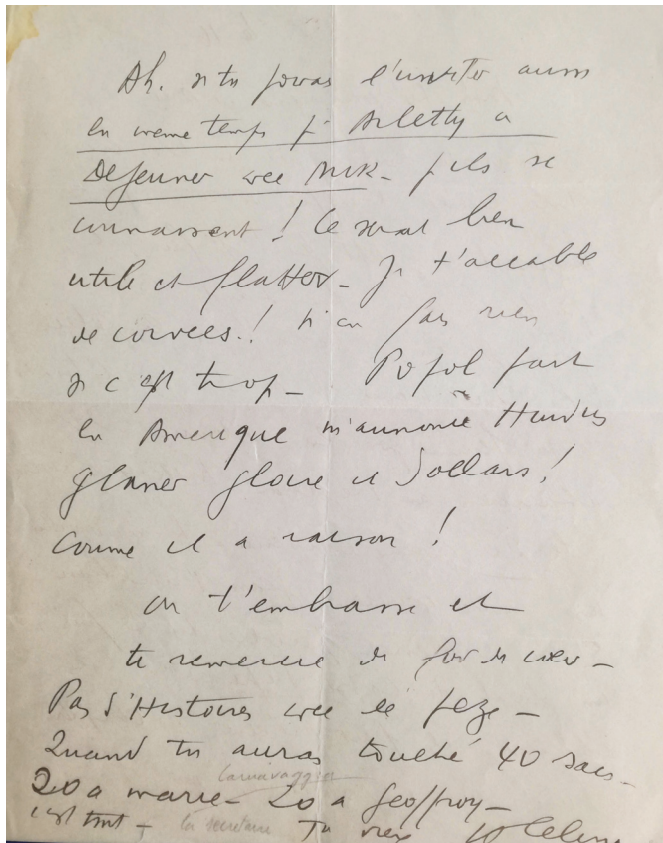 Ah. si tu pouvais l'inviter aussi
en meme temps q' Arletty a
Dejeuner avec Mik - qu'ils se
connaissent ! Ce serait bien
utile et flatteur - Je t'accable
de corvées ! N'en fais rien
si c'est trop - Popol part
en Amerique m'annonce
glaner gloire et Dollars !
Comme il a raison !
On t'embrasse et
te remercie de fond du cœur -
Pas d'Histoires avec le fege -
Quand tu auras touché 40 sacs -
Carnavaggia
20 a Marie - 20 a Geoffroy -
c'est tout - la secretaire Ton vieux